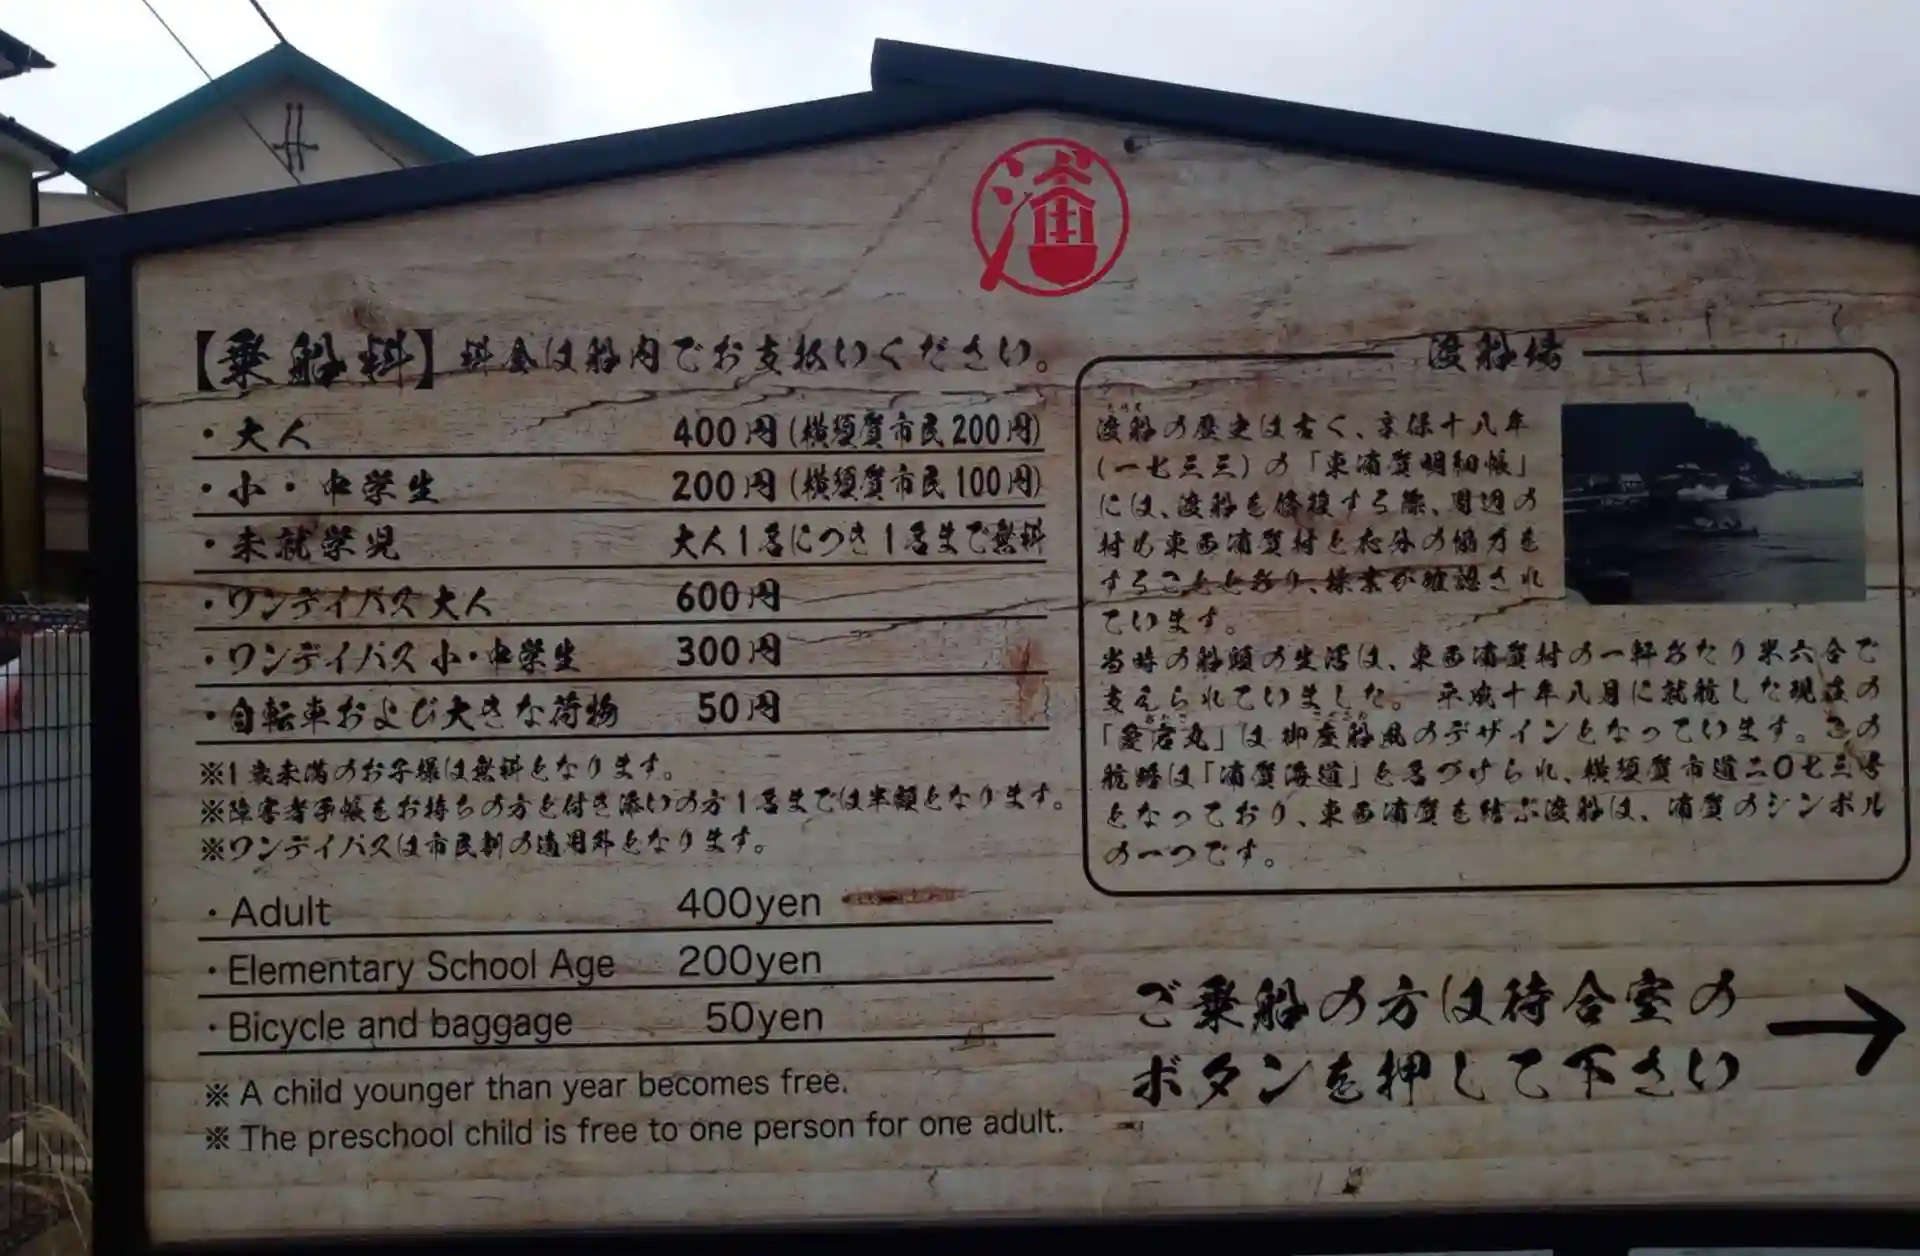 浦
【乗船料】料金は船内でお支払いください。
・大人 400円(横須賀市民200円)
・小・中学生 200円(横須賀市民100円)
・未就学児 大人1名につき1名まで無料
・ワンデイパス 大人 600円
・ワンデイパス 小・中学生 300円
・自転車および大きな荷物 50円
※1歳未満のお子様は無料となります。
※障害者手帳をお持ちの方と付き添いの方1名までは半額となります。
※ワンデイパスは市民割の適用外となります。
・Adult 400yen
・Elementary School Age 200yen
・Bicycle and baggage 50yen
※ A child younger than year becomes free.
※ The preschool child is free to one person for one adult.
渡船場
渡船の歴史は古く、享保十八年
(一七三三)の「東浦賀明細帳」
には、渡船を修復する際、周辺の
村も東西浦賀村と応分の協力を
することとあり、操業が確認され
ています。
当時の船頭の生活は、東西浦賀村の一軒あたり米六合で
支えられていました。平成十年八月に就航した現在の
「愛宕丸」は御座船風のデザインとなっています。この
航路は「浦賀海道」と名づけられ、横須賀市道二〇七三号
となっており、東西浦賀を結ぶ渡船は、浦賀のシンボル
の一つです。
ご乗船の方は待合室の
ボタンを押して下さい
→